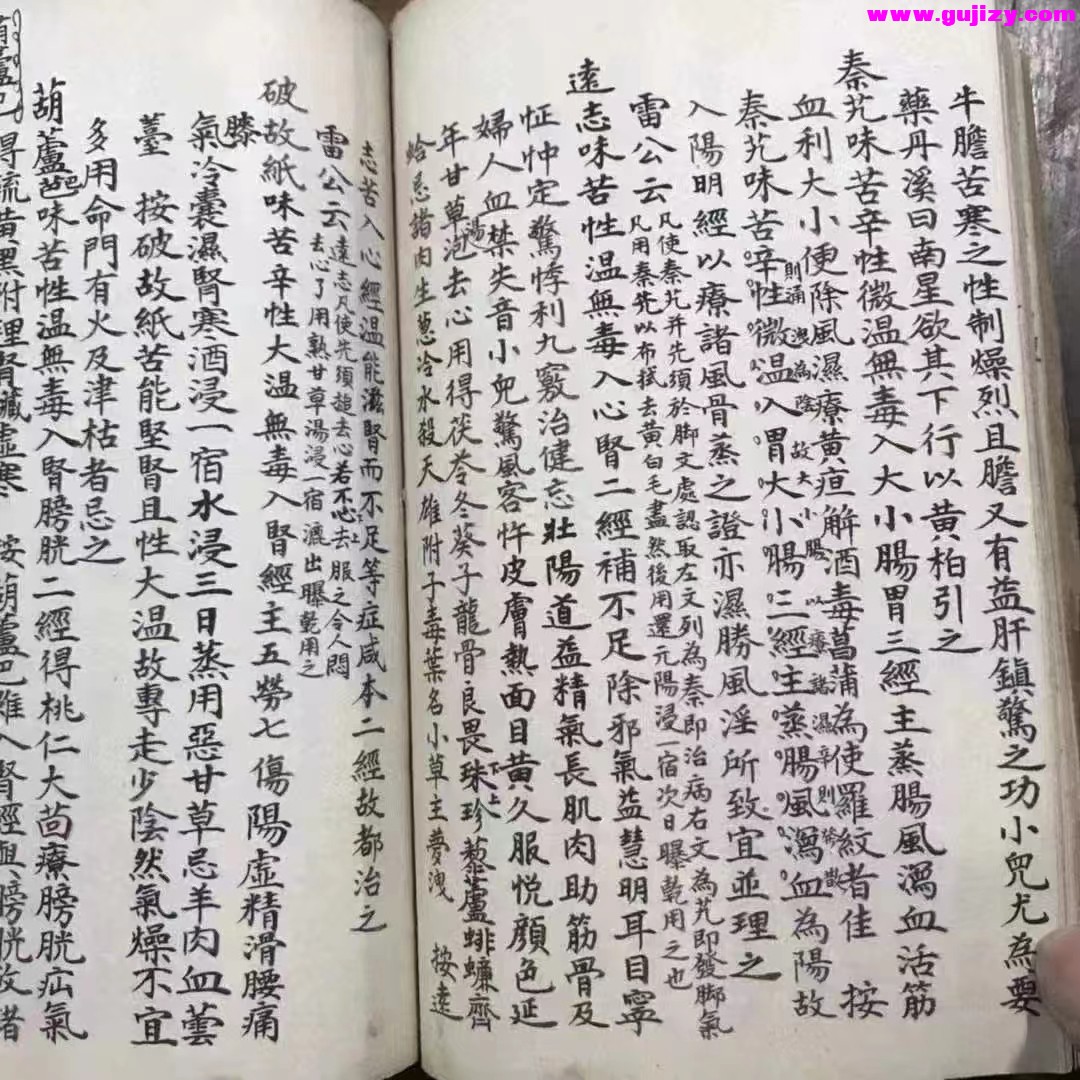 www.gujizy.com
牛膽苦寒之性制燥烈且膽又有益肝鎮驚之功小兒尤為要
藥丹溪曰南星欲其下行以黃柏引之
秦艽味苦辛性微温無毒入大小腸胃三經主蒸腸風瀉血活筋
血利大小便除風濕療黃疸解酒毒菖蒲為使羅紋者佳 按
則涌洩為陰故大小腸以療諸濕辛則發散
秦艽味苦辛性微温入胃大小腸三經主蒸腸風瀉血為陽故
入陽明經以療諸風骨蒸之證亦濕勝風淫所致宜並理之
雷公云
凡使秦艽并先須於脚文處認取左文列為秦即治病右文為艽即發脚氣
凡用秦艽先以布拭去黃白毛盡然後用還元陽浸一宿次日曝乾用之也
遠志味苦性温無毒入心腎二經補不足除邪氣益慧明耳目寧
怔忡定驚悸利九竅治健忘壯陽道益精氣長肌肉助筋骨及
婦人血禁失音小兒驚風客忤皮膚熱面目黃久服悦顏色延
年甘草湯泡去心用得茯苓冬葵子龍骨良畏珠珍藜蘆蜚蠊齊
蛤忌諸肉生葱冷水殺天雄附子毒葉名小草主夢洩 按遠
志苦入心經温能滋腎而不足等症咸本二經故都治之
雷公云
遠志凡使先須搥去心若不心去服之令人悶
去心了用熟甘草湯浸一宿漉出曝乾用之
破故紙味苦辛性大温無毒入腎經主五勞七傷陽虛精滑腰痛
膝氣冷囊濕腎寒酒浸一宿水浸三日蒸用惡甘草忌羊肉血蕓
薹 按破故紙苦能堅腎且性大温故專走少陰然氣燥不宜
多用命門有火及津枯者忌之
葫蘆巴味苦性温無毒入腎膀胱二經得桃仁大茴療膀胱疝氣
得硫黃黑附理腎臟虛寒 按葫蘆巴雖入腎經與膀胱故者